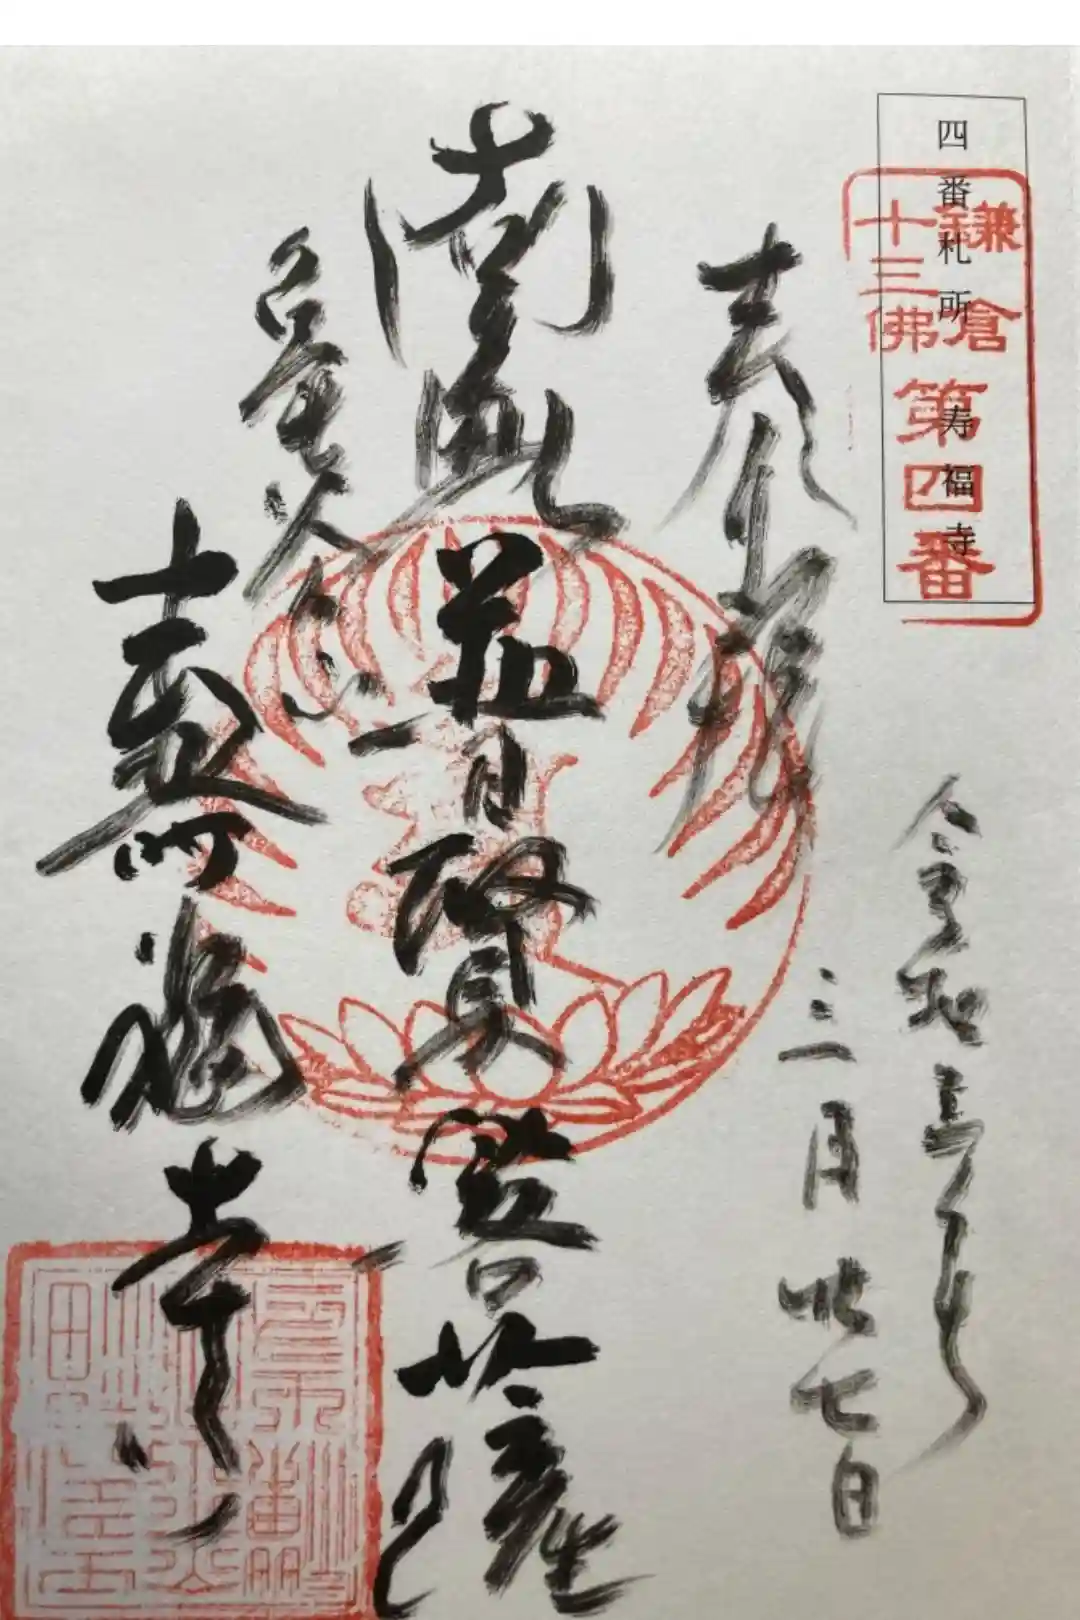 四番札所 寿福寺
鎌倉
十三佛
第四番
奉拝
令和
三月廿七日
南無
普賢菩薩
亀谷山
壽福寺